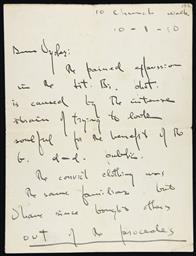 10 Church walk
10 - 8 - 50
Dear Vydas:
The pained expression
in the Lit. Bs. dot.
is caused by the intense
strain of trying to look
soulful for the benefit of the
G. d - d. public.
The convict clothing was
the same familiar but
I have since bought others
out of the proceeds